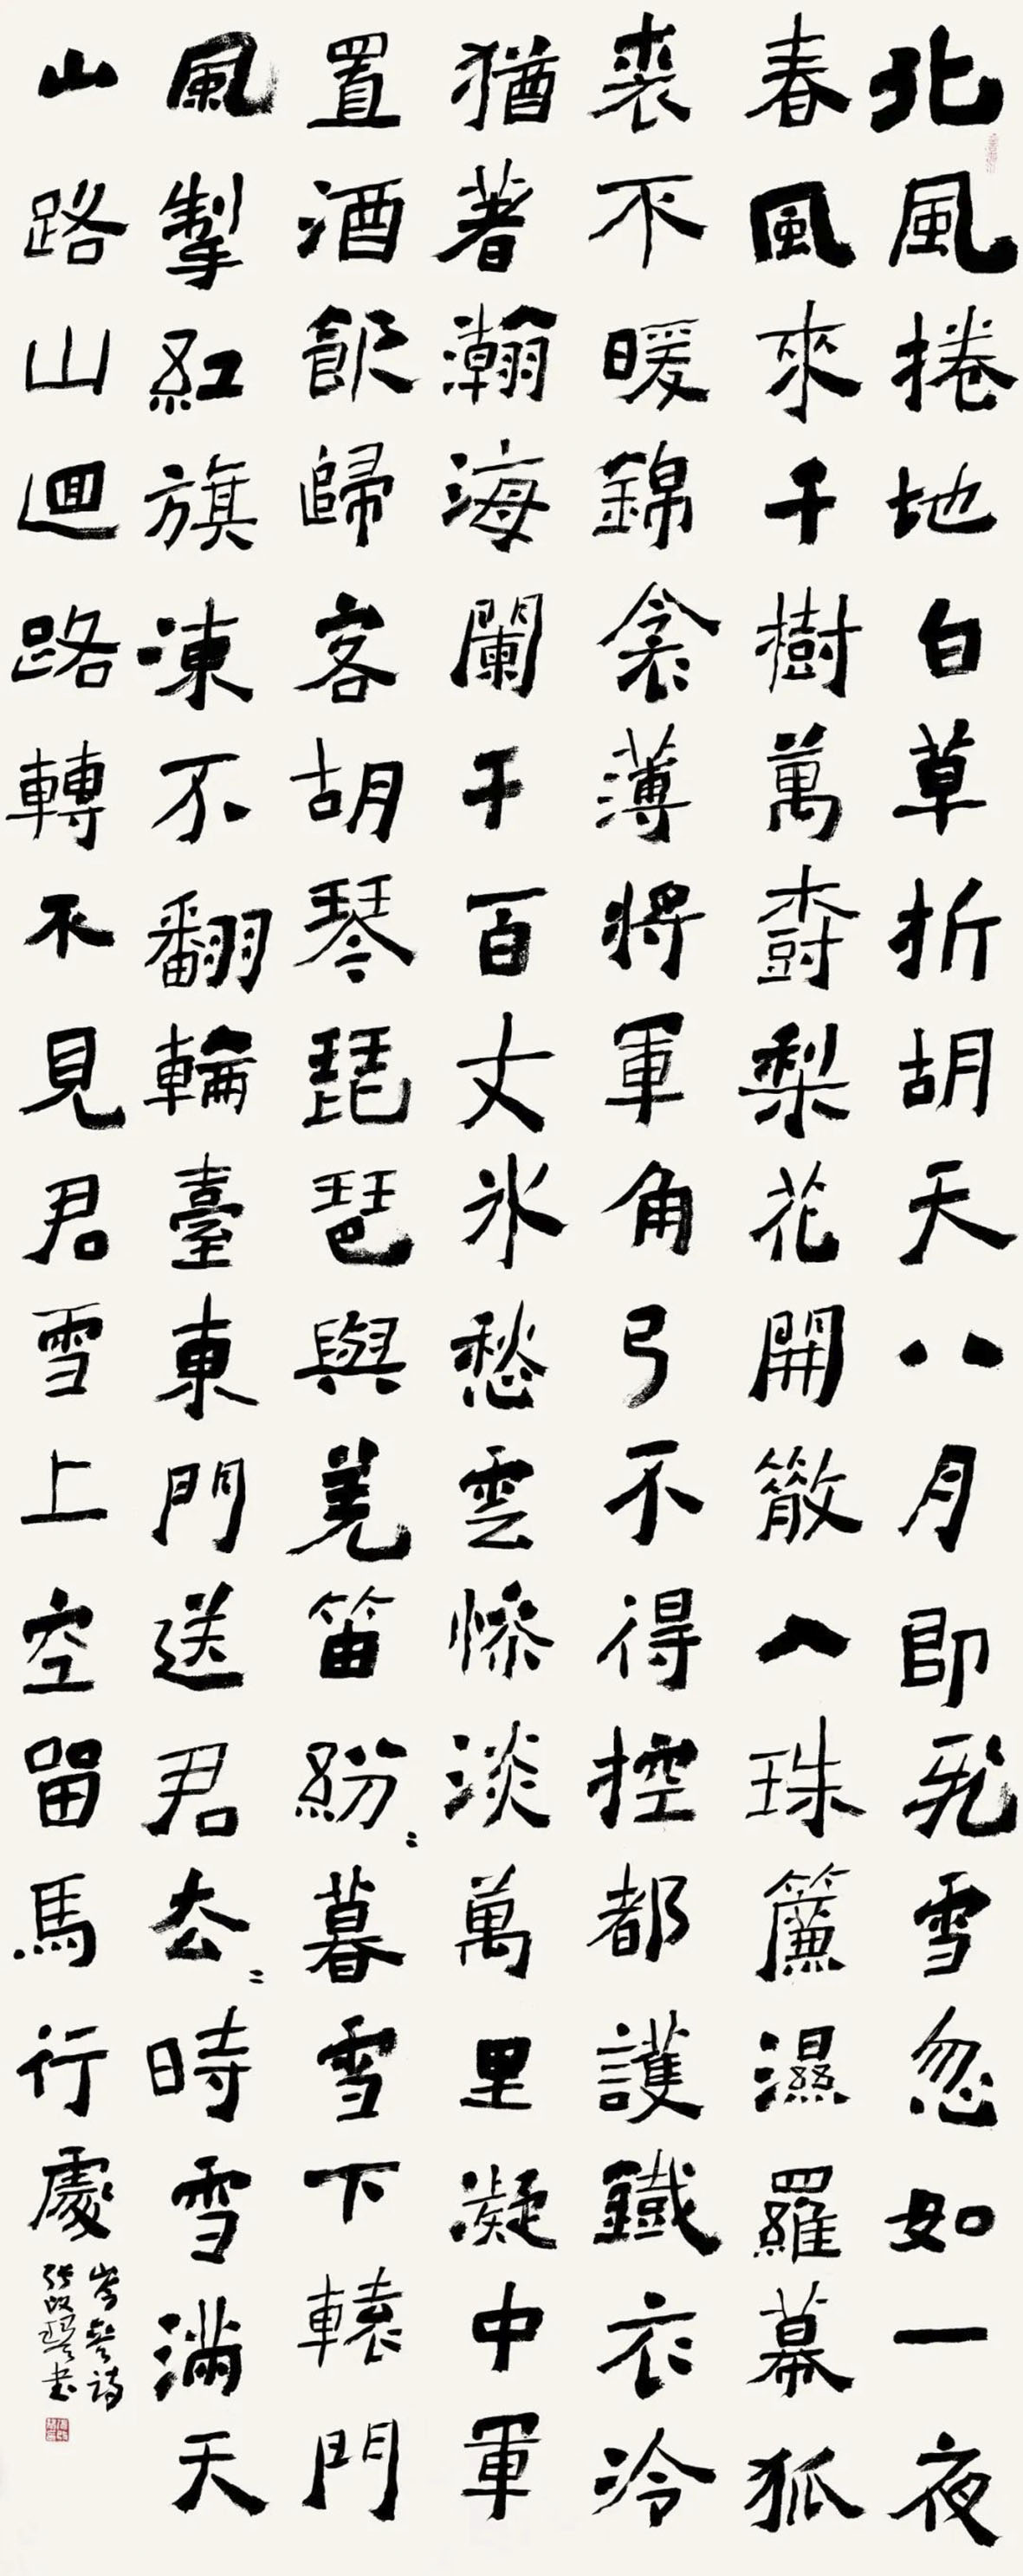 北風捲地白草折胡天八月即飛雪忽如一夜
春風來千樹萬樹梨花開散入珠簾濕羅幕狐
裘不暖錦衾薄將軍角弓不得控都護鐵衣冷
猶著瀚海闌干百丈冰愁雲慘淡萬里凝中軍
置酒飲歸客胡琴琵琶與羌笛紛〻暮雪下轅門
風掣紅旗凍不翻輪臺東門送君去〻時雪滿天
山路山迴路轉不見君雪上空留馬行處
岑參詩
張改琴書